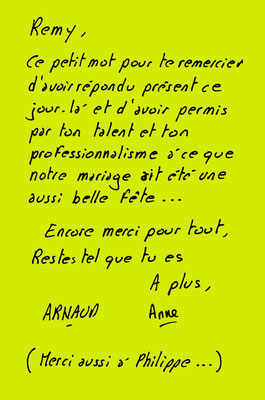 Remy,
Ce petit mot pour te remercier
d'avoir répondu présent ce
jour-là et d'avoir permis
par ton talent et ton
professionnalisme à ce que
notre mariage ait été une
aussi belle fête...
Encore merci pour tout,
Restes tel que tu es
A plus,
ARNAUD Anne
(Merci aussi à Philippe...)